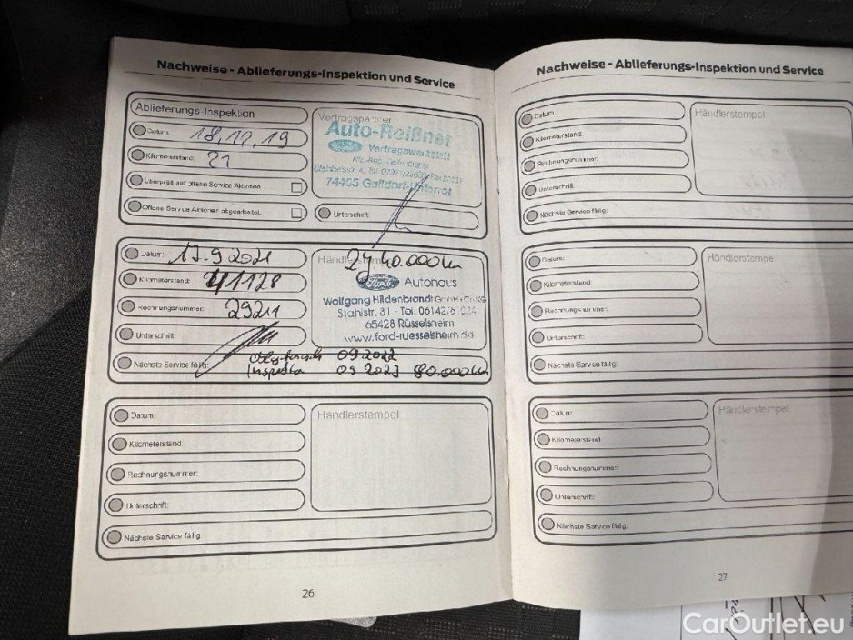 Nachweise - Ablieferungs-Inspektion und Service
Ablieferungs-Inspektion
Datum: 18.10.19
Kilometerstand: 21
Überprüft auf offene Service Aktionen
Offene Service Aktionen abgearbeitet.
Vertragspartner
Auto-Reißner
Ford Vertragswerkstatt
74405 Gaildorf-Unterrot
Unterschrift
Datum: 17.9.2021
Kilometerstand: 41128
Rechnungsnummer: 29211
Unterschrift:
Nächste Service fällig: 09 2022
Inspektion 09 2023 80.000km
Händlerstempel
2J 40.000km
Ford Autohaus
Wolfgang Hildenbrandt GmbH + Co KG
Stahlstr. 31 - Tel. 06142/
65428 Rüsselsheim
www.ford-ruesselsheim.de
Datum:
Kilometerstand:
Rechnungsnummer:
Unterschrift:
Nächste Service fällig:
Händlerstempel
26
Nachweise - Ablieferungs-Inspektion und Service
Datum:
Kilometerstand:
Rechnungsnummer:
Unterschrift:
Nächste Service fällig:
Händlerstempel
Datum:
Kilometerstand:
Rechnungsnummer:
Unterschrift:
Nächste Service fällig:
Händlerstempel
Datum:
Kilometerstand:
Rechnungsnummer:
Unterschrift:
Nächste Service fällig:
Händlerstempel
27
CarOutlet.eu